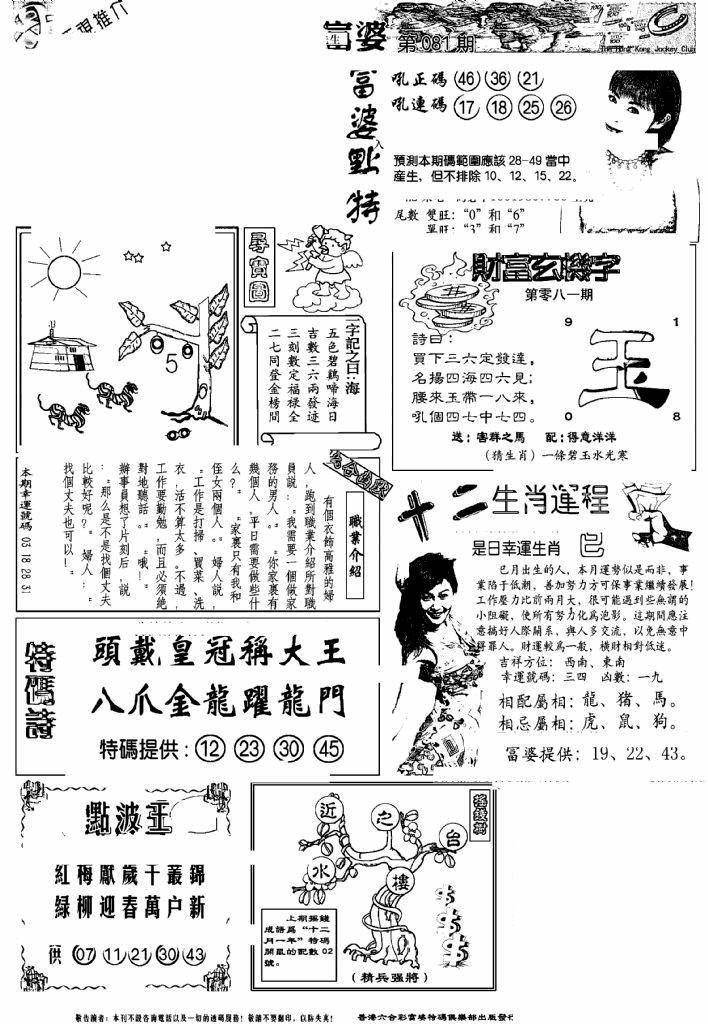 富婆 第081期
The Hong Kong Jockey Club
富婆點特
吼正碼 46 36 21
吼連碼 17 18 25 26
預測本期碼範圍應該28-49當中
産生,但不排除10、12、15、22。
尾數 雙旺:“0”和“6”
單旺:“3”和“7”
尋寶圖
5
一字記之曰:海
五色碧鷄啼海日
吉數三六兩發達
三刻數定福禄全
二七同登金榜間
財富玄機字
第零八一期
9 1
玉
0 8
詩曰:
買下三六定發達,
名揚四海四六見;
腰來玉帶一八來,
吼個四七中七四。
送:害群之馬 配:得意洋洋
(猜生肖)一條碧玉水光寒
職業介紹
有個衣飾高雅的婦
人,跑到職業介紹所對職
員說:“我需要一個做家
務的男人。”“你家裏有
幾個人,平日需要做些什
么?”“家裏只有我和
侄女兩個人。”婦人說,
“工作是打掃、買菜、洗
衣,活不算太多。不過,
工作要勤勉,而且必須絶
對地聽話。”“哦!”
辦事員想了片刻后,說
:“那么是不是找個丈夫
比較好呢?”婦人:“
找個丈夫也可以!”
本期幸運號碼 05 18 28 31
十二生肖運程
是日幸運生肖 巳
巳月出生的人,本月運勢似是而非,事
業陷于低潮,善加努力方可保事業繼續發展!
工作壓力比前兩月大,很可能遇到些無謂的
小阻礙,使所有努力化爲泡影。這期間應注
意搞好人際關系,與人多交流,以免無意中
得罪人。財運較爲一般,横財相對低迷。
吉祥方位: 西南、東南
幸運號碼:三四 凶數:一九
相配屬相:龍、猪、馬。
相忌屬相:虎、鼠、狗。
富婆提供:19、22、43。
特碼詩
頭戴皇冠稱大王
八爪金龍躍龍門
特碼提供:12 23 30 45
點波王
紅梅獻歲千叢錦
緑柳迎春萬户新
供 07 11 21 30 43
摇錢樹
近 之 台
水 樓
上期摇錢
成語爲“十二
月一年”特碼
開鼠的配數02
號。
(精兵强將)
敬告讀者:本刊不設咨詢電話以及一切的透碼服務!敬請不要翻印,以防失真!